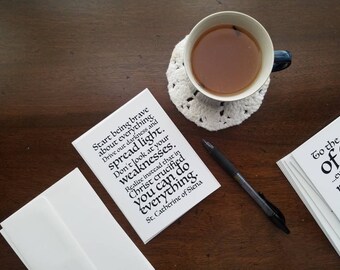 Start being brave
about everything.
Drive out darkness and
spread light.
Don't look at your
weaknesses.
Realize instead that in
Christ crucified
you can do
everything.
St. Catherine of Siena
To the
of